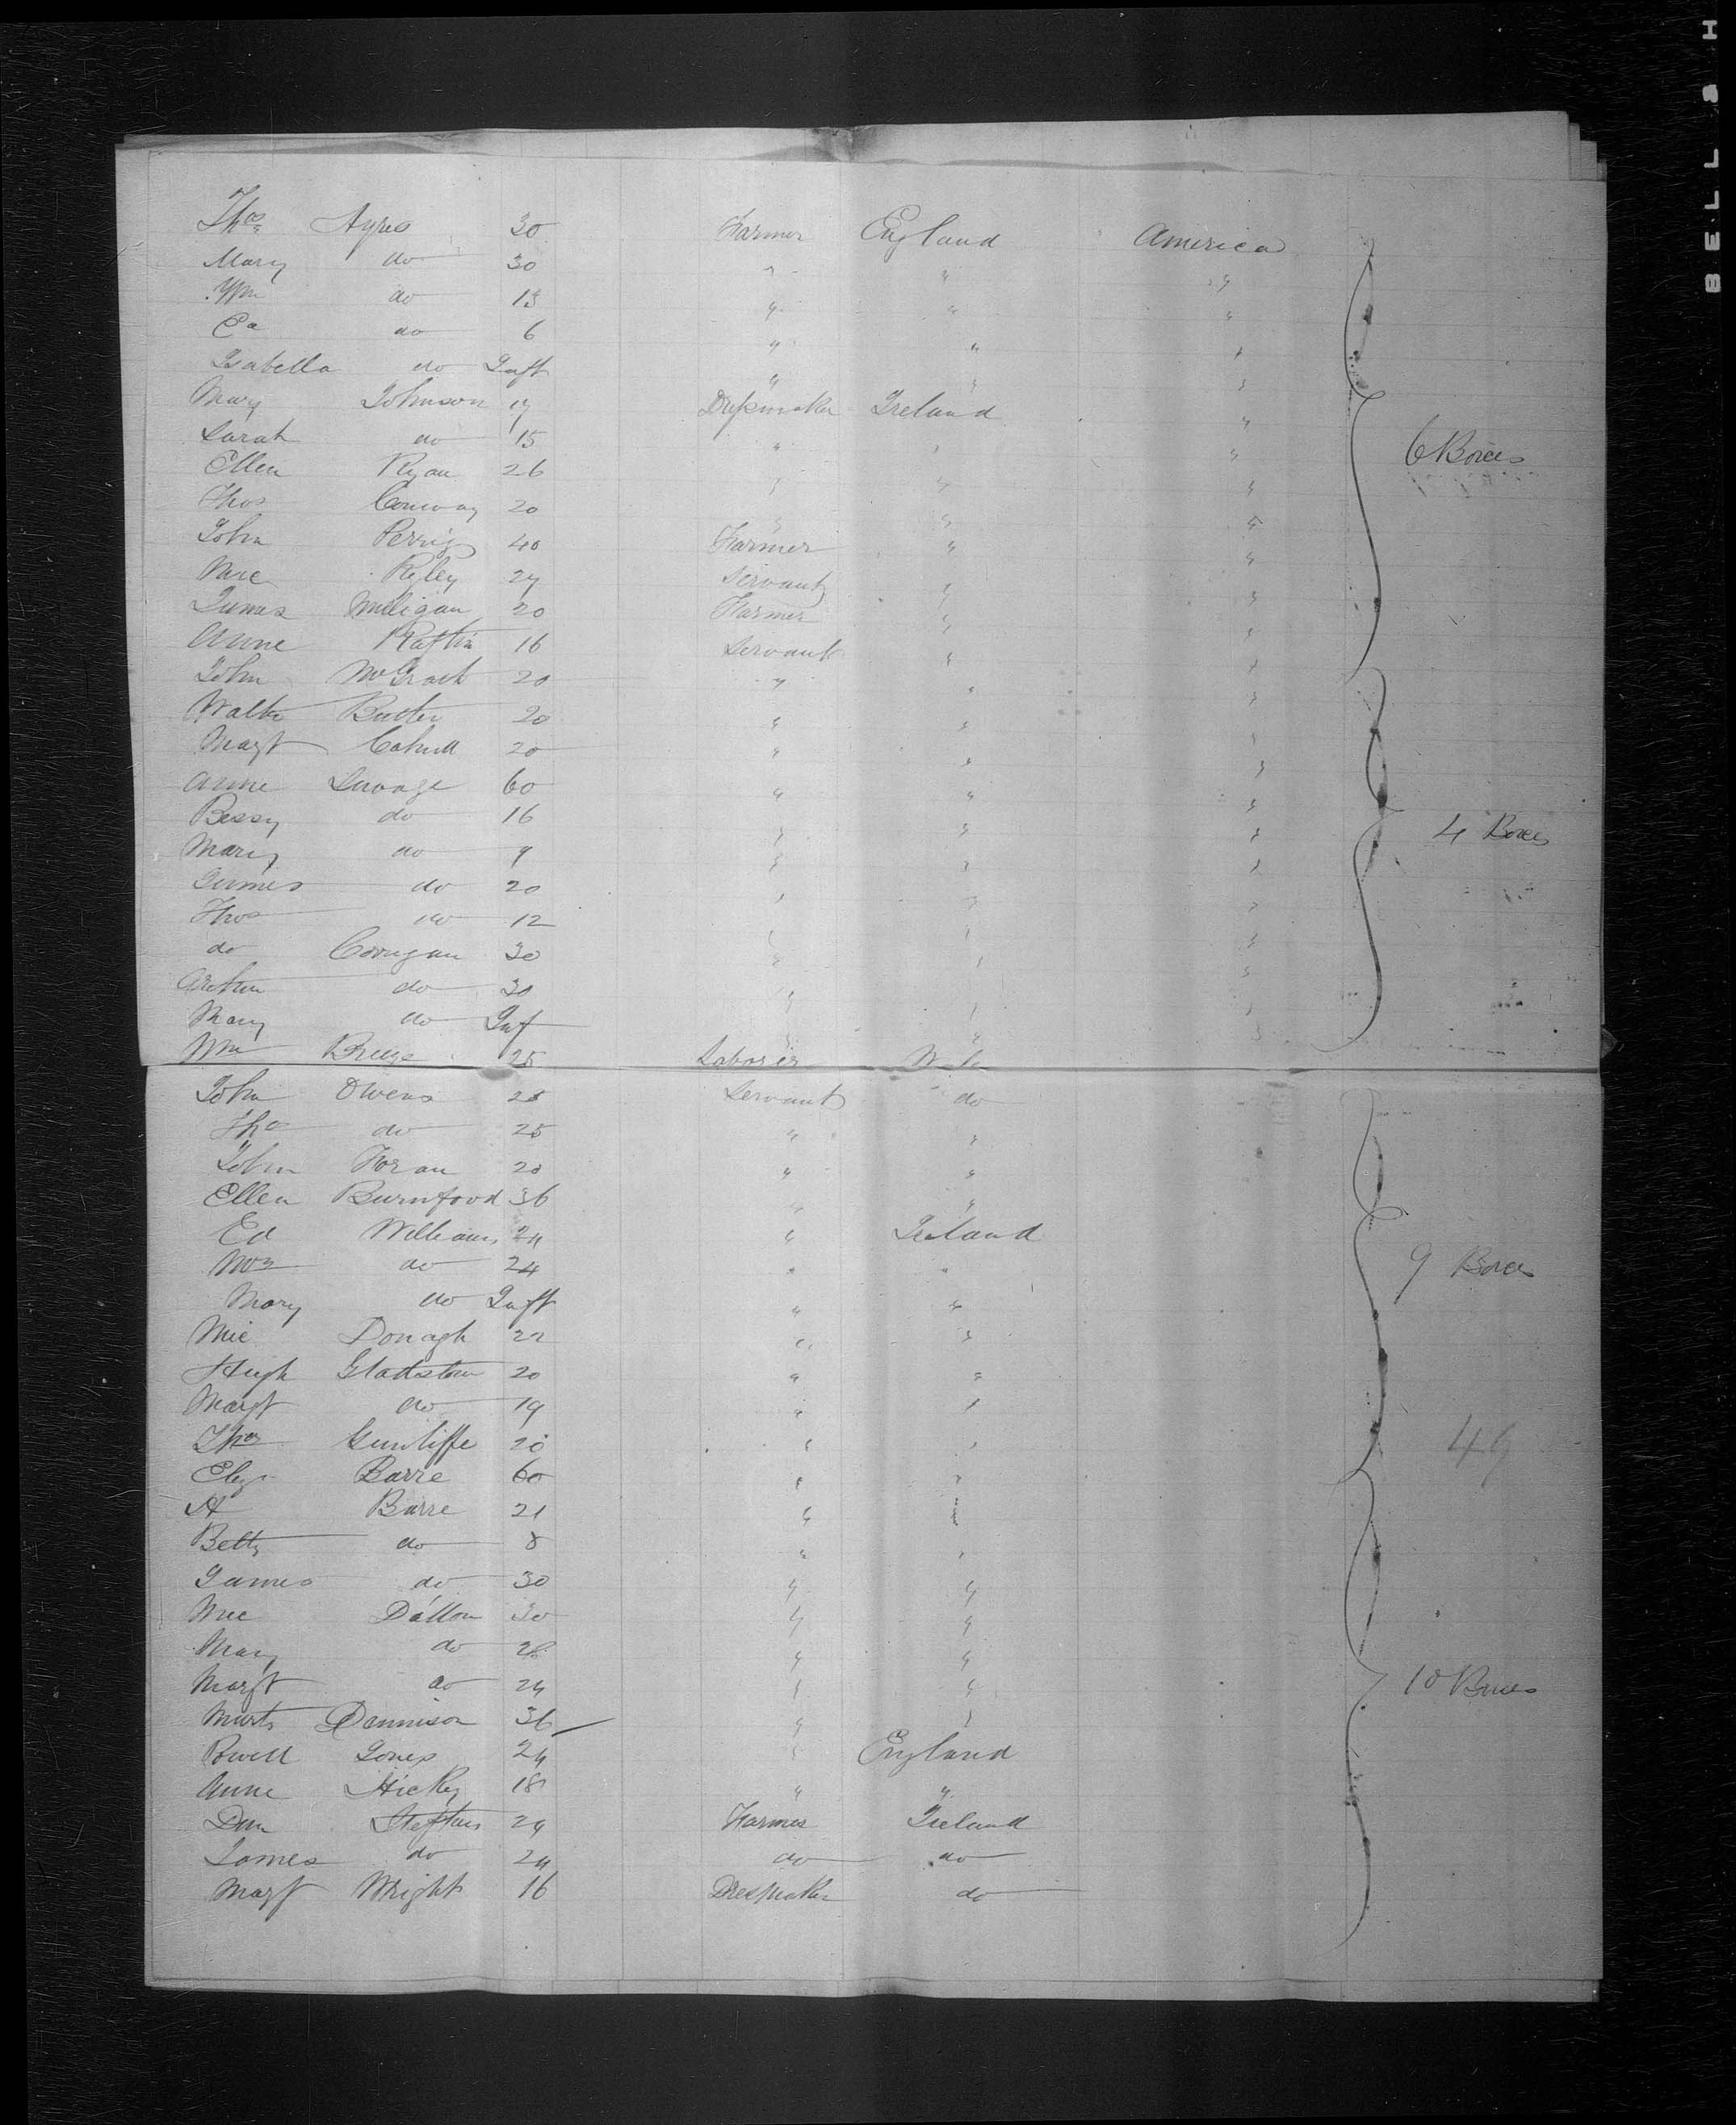 Thos Ayres 30 Farmer England America
Mary do 30 " " "
Wm do 13 " " "
Ed do 6 " " "
Isabella do Inft " " "
Mary Johnson 17 Dressmaker Ireland "
Sarah do 15 " " "
Ellen Ryan 26 " " "
6 Boxes
Thos Conway 20 " " "
John Perrig 40 Farmer " "
Mic Ryley 27 Servant " "
James Milligan 20 Farmer " "
Anne Raftin 16 Servant " "
John McGrath 20 " " "
Walter Butler 20 " " "
Margt Cahill 20 " " "
Anne Savage 60 " " "
Bessy do 16 " " "
4 Boxes
Mary do 9 " " "
James do 20 " " "
Thos do 12 " " "
do Corrigan 30 " " "
do 30 " " "
Mary do Inf " " "
Wm 25 Laborer
John Owens 25 Servant do
Tho do 25 " "
John Foran 20 " "
Ellen Burnfood 36 " "
Ed Williams 24 " Ireland
Mrs do 24 " "
9 Boxes
Mary do Inft " "
Mic Donagh 22 " "
Hugh Gladstone 20 " "
Margt do 19 " "
Thos Gunliffe 20 " "
49
Eliza Barre 60 " "
A Barre 21 " "
Betty do 8 " "
James do 30 " "
Mic Dallon 30 " "
Mary do 28 " "
Margt do 24 " "
10 Boxes
Dennison 36 " "
Powell Jones 24 " England
Anne Hickey 18 " "
Dan 24 Farmer Ireland
James do 24 do do
Margt Wright 16 Dressmaker do
BELL & H